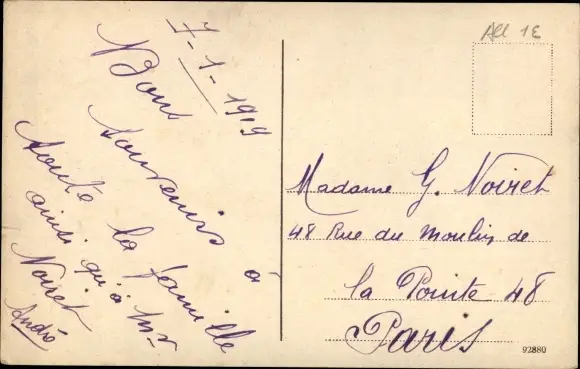 7-1-1919
Bons
souvenirs à
toute la famille
ainsi qu'à Mr
Noiret
André
All 1E
Madame G. Noiret
48 Rue du Moulin de
la Pointe 48
Paris
92880